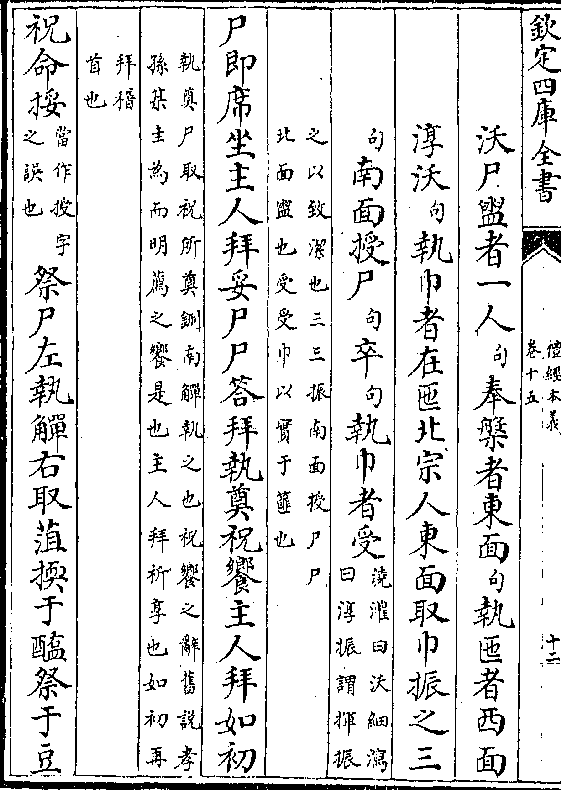 欽定四庫全書
禮經本義
卷十五
十二
沃尸盥者一人句奉槃者東面句執匜者西面
淳沃句執巾者在匜北宗人東面取巾振之三
句南面授尸句卒句執巾者受澆灌曰沃細瀉
曰淳振謂揮振
之以致潔也三三振南面授尸尸
北面盥也受受巾以實于篚也
尸即席坐主人拜妥尸尸答拜執奠祝饗主人拜如初
執奠尸取祝所奠鉶南觶執之也祝饗之辭舊說孝
孫某圭為而明薦之饗是也主人拜祈享也如初再
拜稽
首也
祝命挼當作授字
之誤也祭尸左執觶右取菹㨎于醢祭于豆